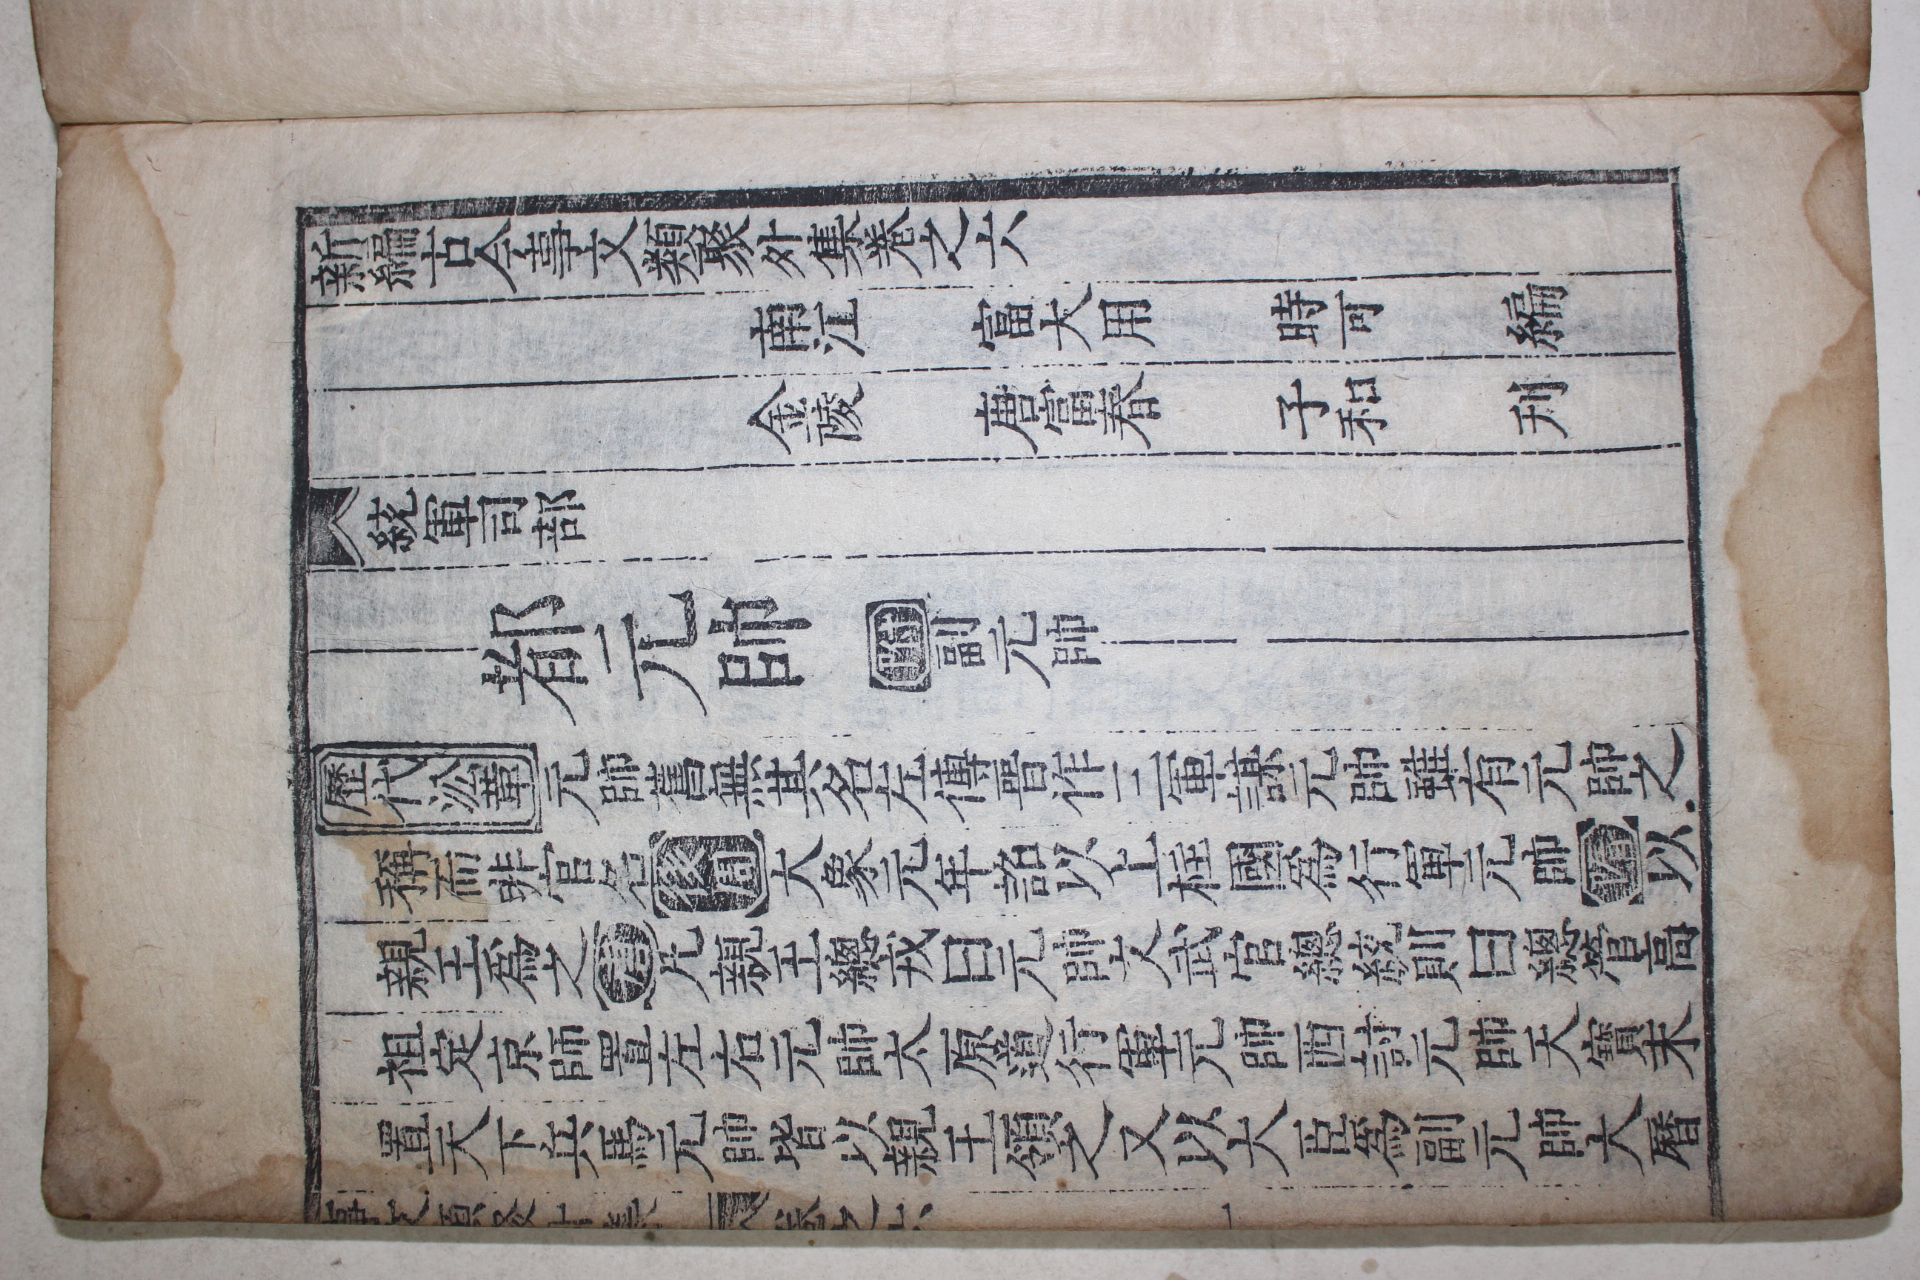 新編古今事文類聚外集卷之六
南江 富大用 時可 編
金陵 唐富春 子和 刋
統軍司部
都元帥 副元帥
歷代沿革 元帥舊無其名左傳晉作三軍謀元帥雖有元帥之
稱而非官名後周大象元年詔以上柱國爲行軍元帥隋以
親王爲之唐凡親王總戎曰元帥文武官總統則曰總管高
祖定京師置左右元帥太原道行軍元帥西討元帥天寶末
置天下兵馬元帥皆以親王領之又以大臣爲副元帥大曆